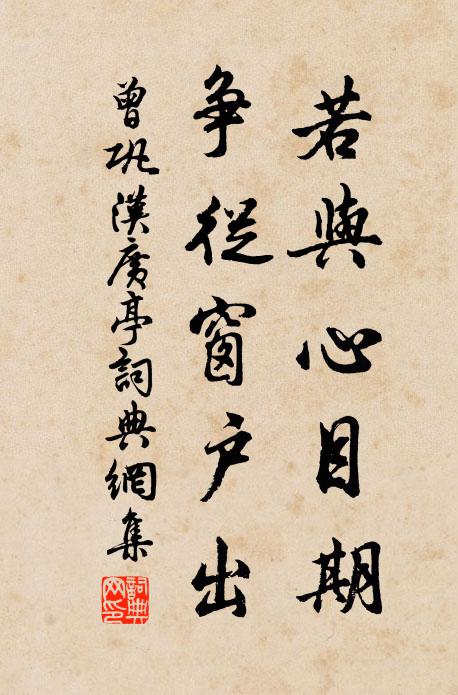 若與心目期
争從窗户出
曾巩漢廣亭詞典網集
詞典网印